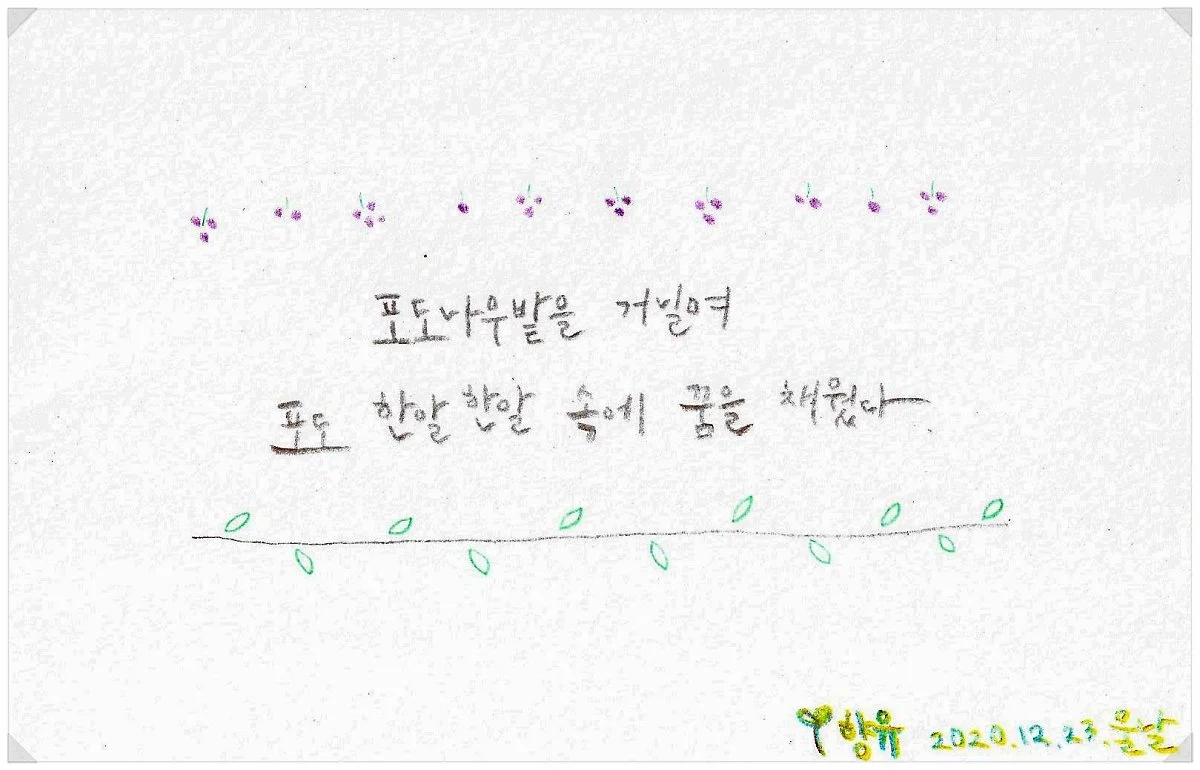 포도나무밭을 거닐며
포도 한알한알 속에 꿈을 채웠다
향유 2020.12.23.윤달